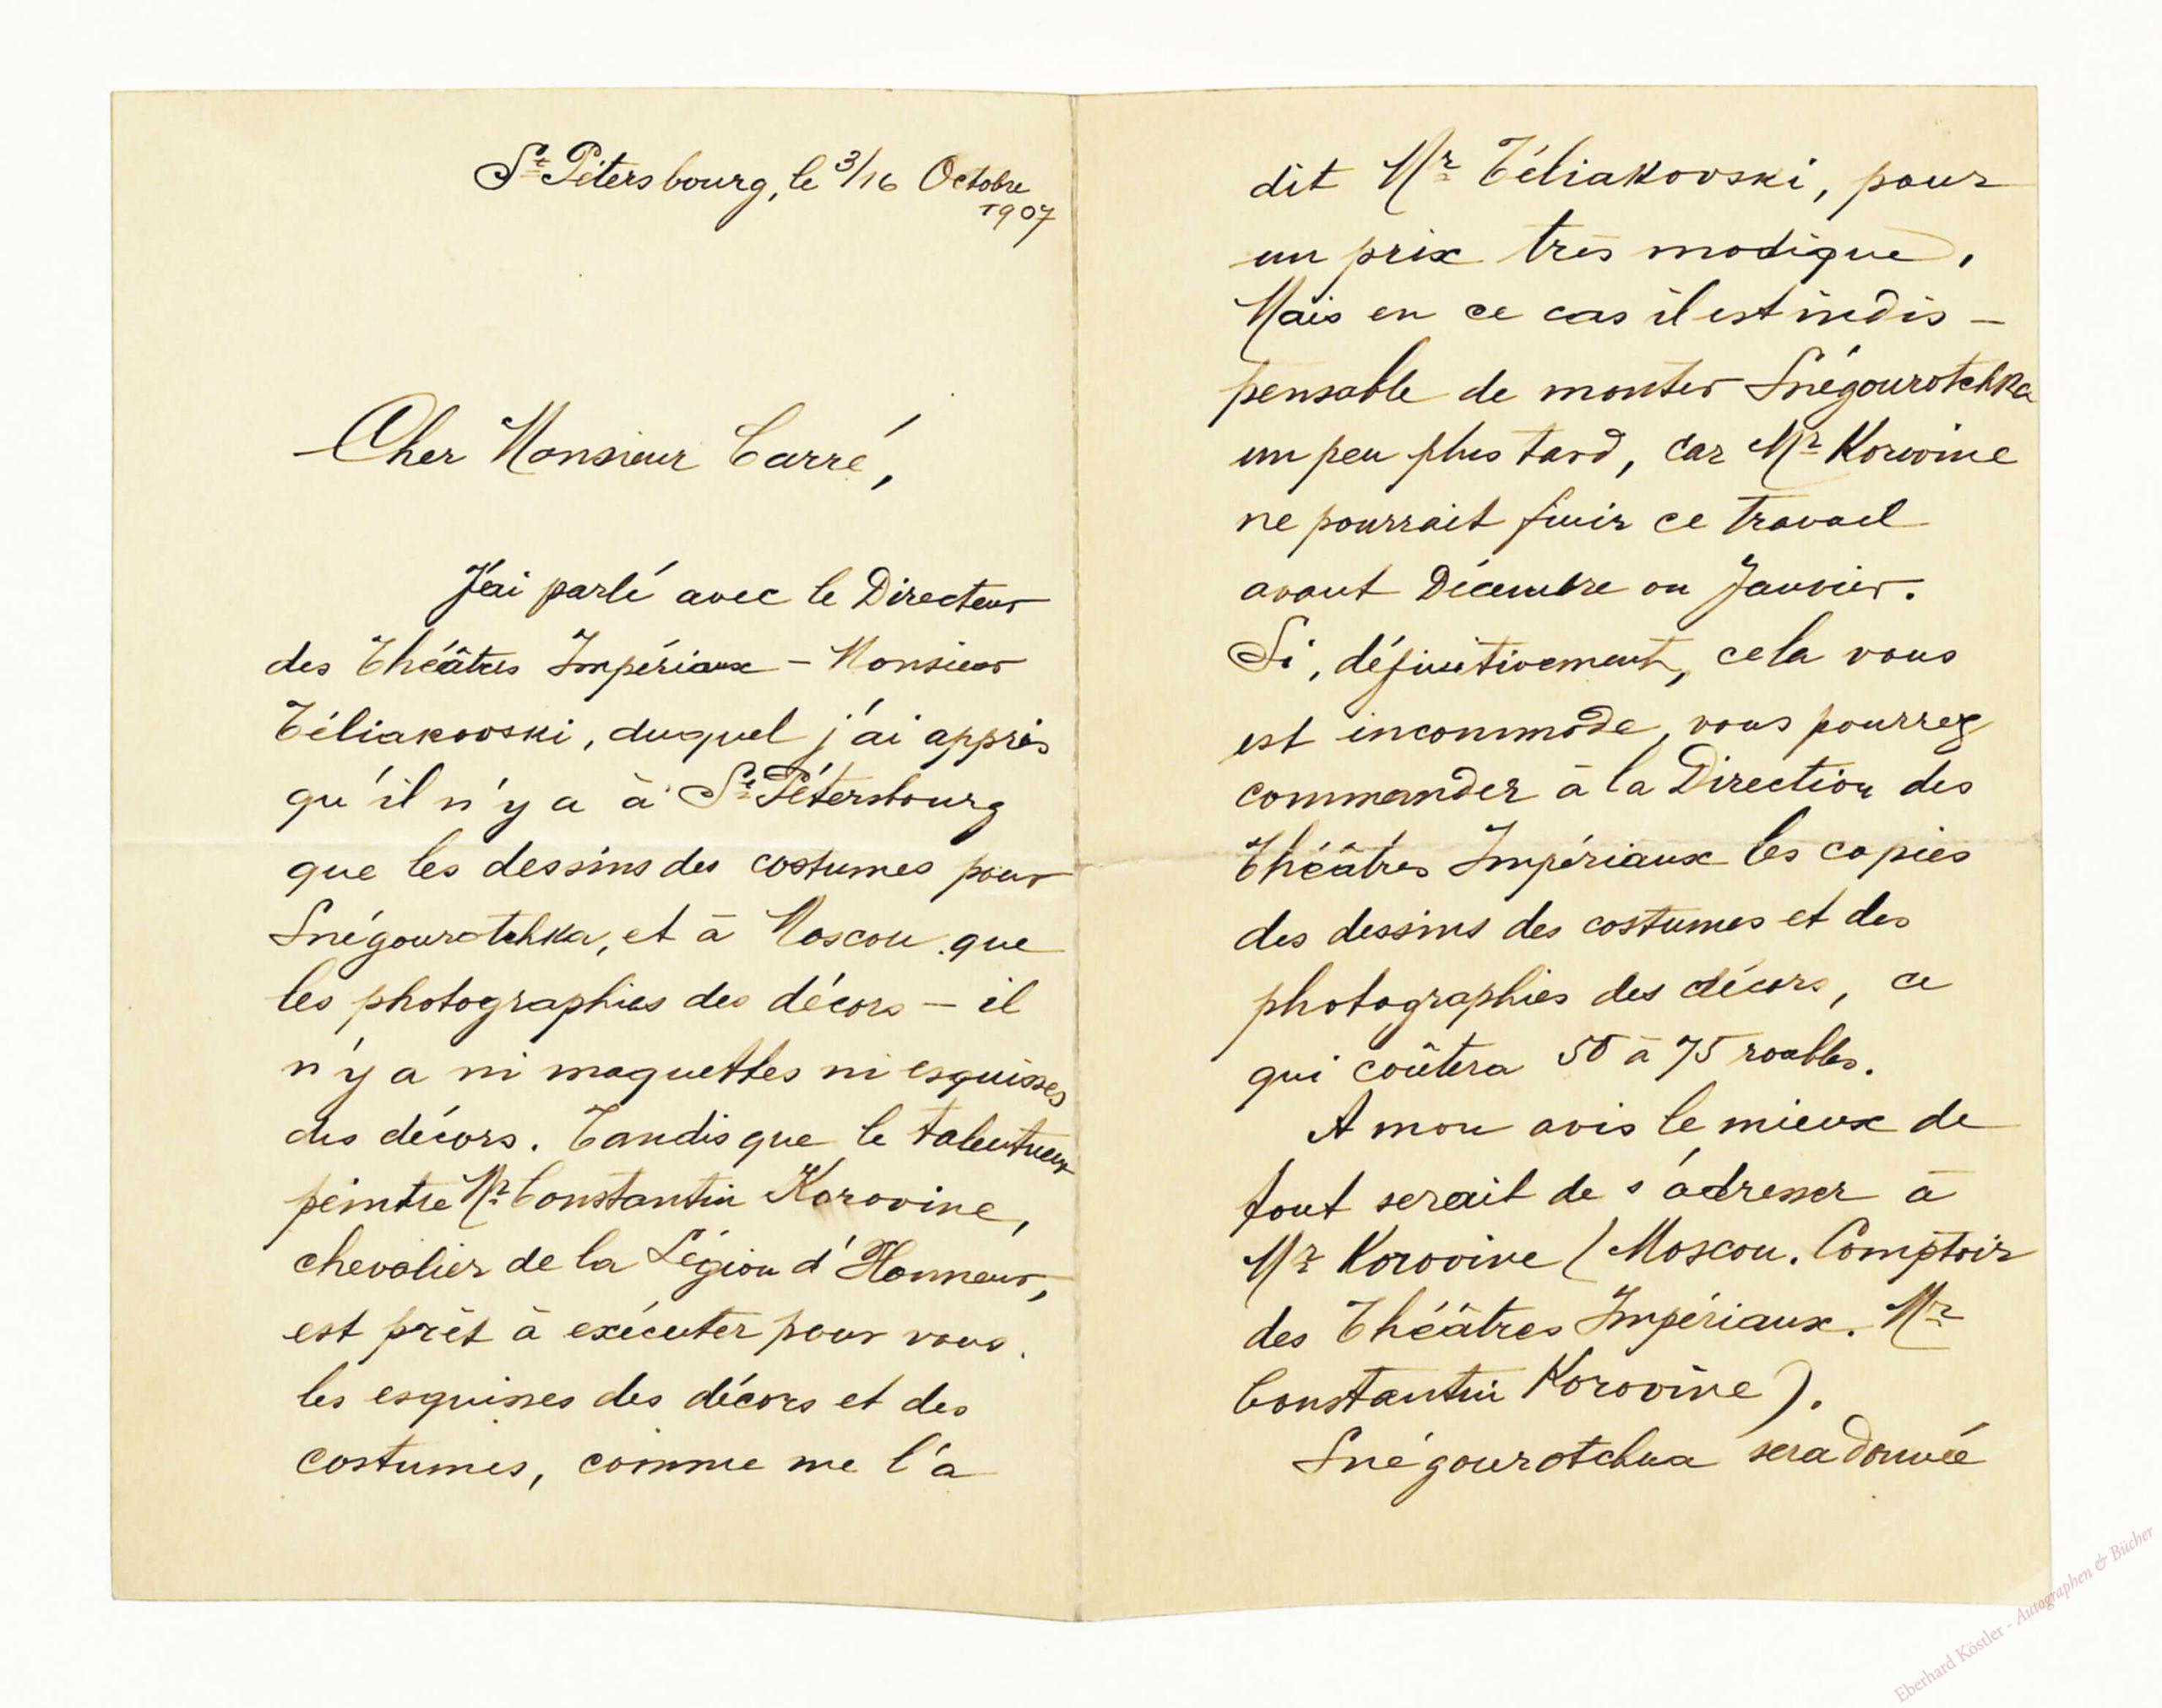 St Pétersbourg, le 3/16 Octobre
1907
Cher Monsieur Carré,
J'ai parlé avec le Directeur
des Théâtres Impériaux – Monsieur
Téliakovski, duquel j'ai appris
qu'il n'y a à St Pétersbourg
que les dessins des costumes pour
Snégourotchka, et à Moscou que
les photographies des décors – il
n'y a ni maquettes ni esquisses
des décors. Tandis que le talentueux
peintre Mr Constantin Korovine,
chevalier de la Légion d'Honneur,
est prêt à exécuter pour vous
les esquisses des décors et des
costumes, comme me l'a
dit Mr Téliakovski, pour
un prix très modique.
Mais en ce cas il est indis–
pensable de monter Snégourotchka
un peu plus tard, car Mr Korovine
ne pourrait finir ce travail
avant Décembre ou Janvier.
Si, définitivement, cela vous
est incommode, vous pourrez
commander à la Direction des
Théâtres Impériaux les copies
des dessins des costumes et des
photographies des décors, ce
qui coûtera 50 à 75 roubles.
A mon avis le mieux de
tout serait de s'adresser à
Mr Korovine (Moscou. Comptoir
des Théâtres Impériaux. Mr
Constantin Korovine).
Snégourotchka sera donnée
Eberhard Köstler - Autographen & Bücher